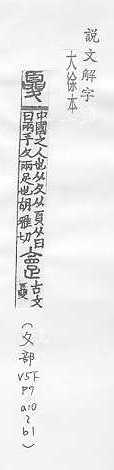 説文解字
大徐本
夏
中國之人也从夊从頁从𦥑
𦥑兩手夊兩足也胡雅切
古文
夏
(夊部
V5F
P9
a:0
2
b1)